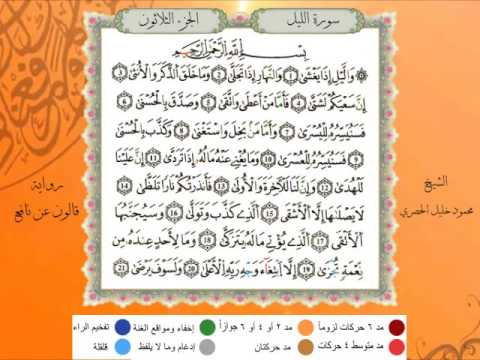 سورة الليل
الجزء الثلاثون
بِسْمِ اللَّهِ الرَّحْمَٰنِ الرَّحِيمِ
وَالَّيْلِ إِذَا يَغْشَىٰ 1 وَالنَّهَارِ إِذَا تَجَلَّىٰ 2 وَمَا خَلَقَ الذَّكَرَ وَالْأُنثَىٰ 3
إِنَّ سَعْيَكُمْ لَشَتَّىٰ 4 فَأَمَّا مَنْ أَعْطَىٰ وَاتَّقَىٰ 5 وَصَدَّقَ بِالْحُسْنَىٰ 6
فَسَنُيَسِّرُهُ لِلْيُسْرَىٰ 7 وَأَمَّا مَن بَخِلَ وَاسْتَغْنَىٰ 8 وَكَذَّبَ بِالْحُسْنَىٰ
9 فَسَنُيَسِّرُهُ لِلْعُسْرَىٰ 10 وَمَا يُغْنِي عَنْهُ مَالُهُ إِذَا تَرَدَّىٰ 11 إِنَّ عَلَيْنَا
لَلْهُدَىٰ 12 وَإِنَّ لَنَا لَلْآخِرَةَ وَالْأُولَىٰ 13 فَأَنذَرْتُكُمْ نَارًا تَلَظَّىٰ 14
لَا يَصْلَاهَا إِلَّا الْأَشْقَى 15 الَّذِي كَذَّبَ وَتَوَلَّىٰ 16 وَسَيُجَنَّبُهَا
الْأَتْقَى 17 الَّذِي يُؤْتِي مَالَهُ يَتَزَكَّىٰ 18 وَمَا لِأَحَدٍ عِندَهُ مِن
نِّعْمَةٍ تُجْزَىٰ 19 إِلَّا ابْتِغَاءَ وَجْهِ رَبِّهِ الْأَعْلَىٰ 20 وَلَسَوْفَ يَرْضَىٰ 21
الشيخ
محمود خليل الحصري
رواية
قالون عن نافع
مد ٦ حركات لزوماً
مد ٢ أو ٤ أو ٦ جوازاً
إخفاء ومواقع الغنة
تفخيم الراء
مد متوسط ٤ حركات
مد حركتان
إدغام وما لا يلفظ
قلقلة